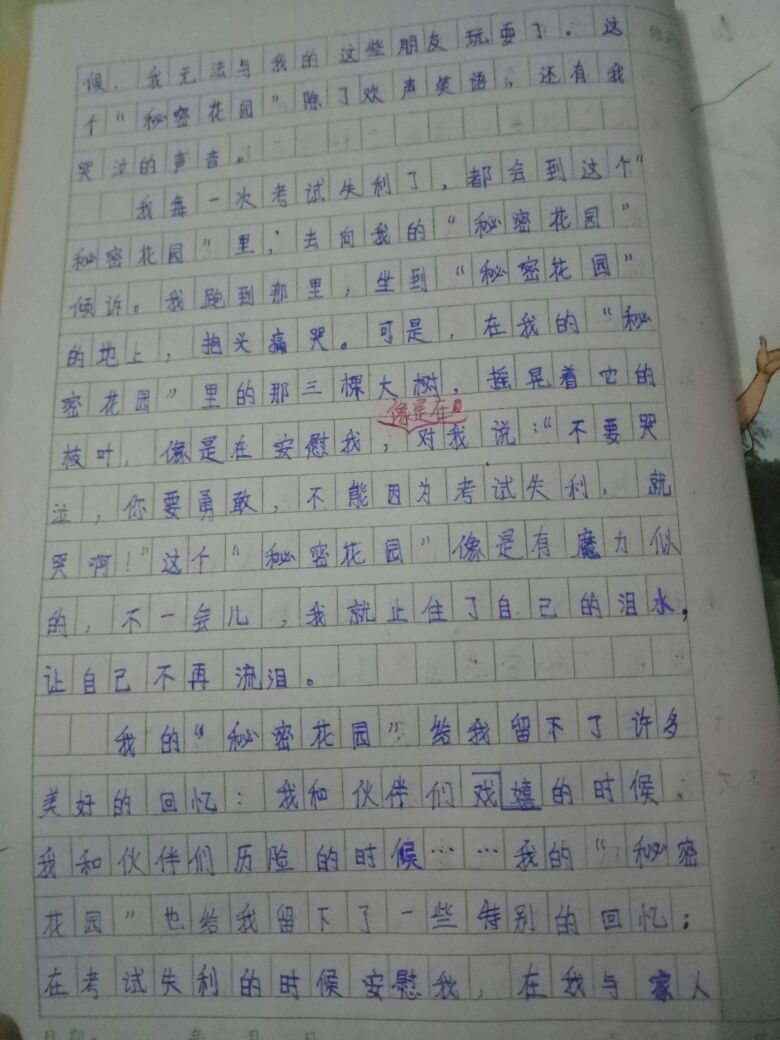 候，我无法与我的这些朋友玩耍了。这
个“秘密花园”除了欢声笑语，还有我
哭泣的声音。
我每一次考试失利了，都会到这个“
秘密花园”里，去向我的“秘密花园”
倾诉。我跑到那里，坐到“秘密花园”
的地上，抱头痛哭。可是，在我的“秘
密花园”里的那三棵大树，摇晃着它的
像是在
枝叶，像是在安慰我，对我说：“不要哭
泣，你要勇敢，不能因为考试失利，就
哭啊！”这个“秘密花园”像是有魔力似
的，不一会儿，我就止住了自己的泪水，
让自己不再流泪。
我的“秘密花园”给我留下了许多
美好的回忆：我和伙伴们戏嬉的时候、
我和伙伴们历险的时候……我的“秘密
花园”也给我留下了一些特别的回忆；
在考试失利的时候安慰我，在我与家人
年 月 日